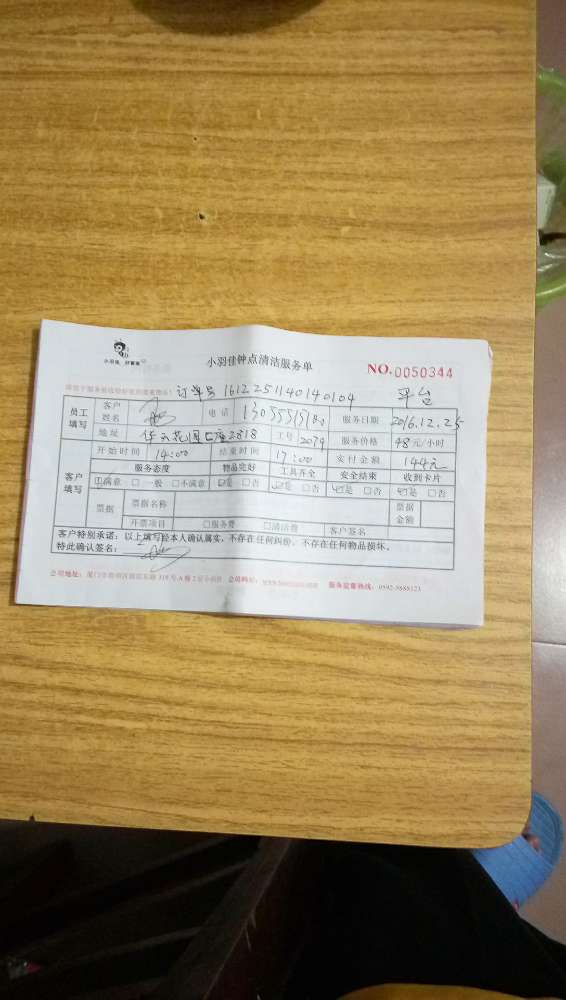 小羽佳钟点清洁服务单
NO.0050344
订单号 161225140140104 平台
员工填写 客户姓名 电话 服务日期 2016.12.25
地址 2818 工号 2079 服务价格 48元/小时
客户填写 开始时间 14:00 结束时间 17:00 实付金额 144元
服务态度 物品完好 工具齐全 安全结束 收到卡片
☑满意 □一般 □不满意 ☑是 □否 ☑是 □否 ☑是 □否 ☑是 □否
票据 票据名称 票据金额
开票项目 □服务费 □清洁费 客户签名
客户特别承诺:以上填写经本人确认属实,不存在任何纠纷,不存在任何物品损坏。
特此确认签名:
公司地址: 公司网址: 服务监督热线:0592-5688123